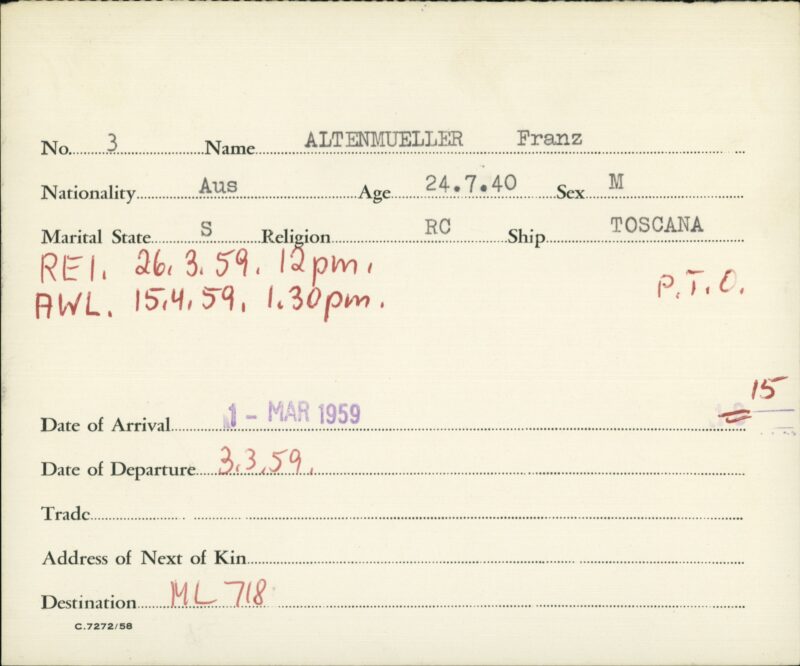 No. 3 Name ALTENMUELLER Franz
Nationality Aus Age 24.7.40 Sex M
Marital State S Religion RC Ship TOSCANA
REI. 26.3.59. 12pm.
AWL. 15.4.59. 1.30pm.
P.T.O.
15
Date of Arrival 1 - MAR 1959
Date of Departure 3.3.59.
Trade
Address of Next of Kin
Destination ML 718
C.7272/58